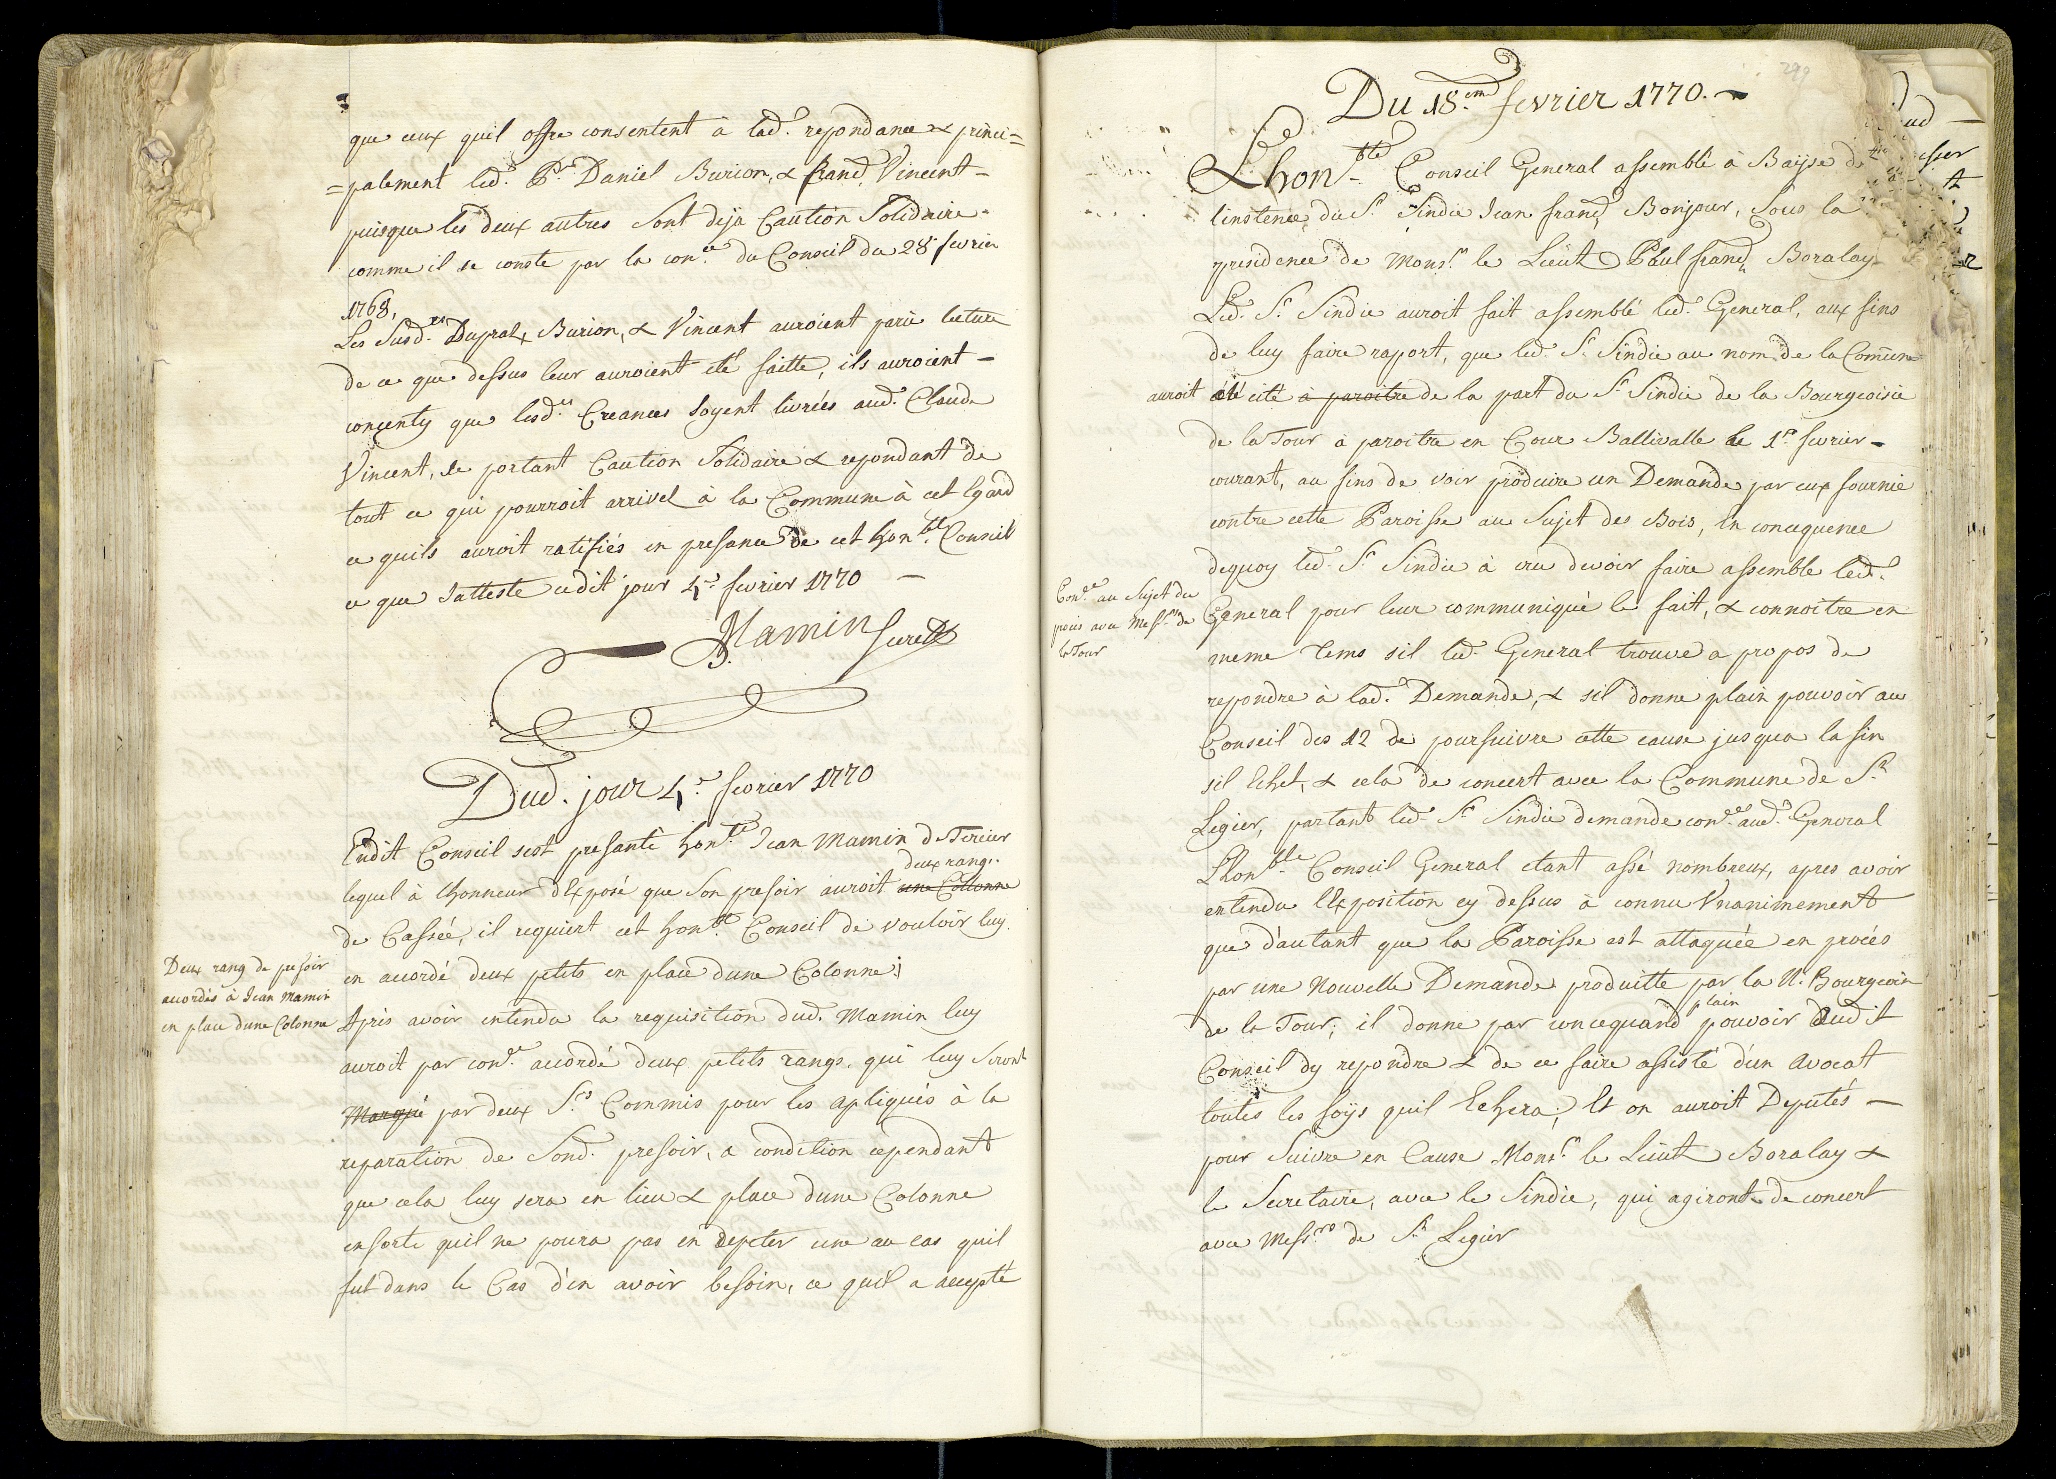 que ceux quil offre consentent à lad.e repondance & princi=
=palement led.t P.re Daniel Burion, & franç.s Vincent –
puisque les deux autres Sont deja Caution Solidaire
comme il se conste par la con.ce du Conseil du 28.e fevrier
1768,
Les Susd.ts Dupraz, Burion, & Vincent auroient parü lecture
de ce que dessus leur auroient eté faitte, ils auroient –
concenty que lesd.es Creances soyent livrées aud.t Claude
Vincent, se portant Caution Solidaire & repondant de
tout ce qui pourroit arrivel à la Commune à cet Egard
ce quils auroit ratifiés en presance de cet hon.ble Conseil
ce que Jatteste cedit jour 4.e fevrier 1770 –
Mamin Secret.re
Dud. jour 4.e fevrier 1770
Endit Conseil sest presanté hon.te Jean Mamin de Tercier
deux rangs
lequel à lhonneur d'Exposé que Son presoir auroit une Collonne
de Cassée, il requiert cet hon.ble Conseil de vouloir luy
en acordé deux petits en place dune Colonne;
Deux rang de presoir
acordés à Jean Mamin
en place dune Colonne
Apris avoir entendu la requisition dud. Mamin luy
auroit par con.ce acordé deux petits rangs. qui luy seront
Marqué par deux S.rs Commis pour les apliqués à la
reparation de Sond. presoir, a condition cependant
que cela luy sera en lieu & place dune Colonne
ensorte quil ne poura pas en depeter une au cas quil
fut dans le Cas d'en avoir besoin, ce quil a accepté
299
Du 18.eme fevrier 1770. –
Lhon.ble Conseil General assemblé à Bayse de
linstence du S.r Sindic Jean franç.s Bonjour, Sous la
presidence de Mons.r le Lieut Paul franç.s Boralay
Led. S.r Sindic auroit fait assemblé led.t General, aux fins
de luy faire raport, que led. S.r Sindic au nom de la Comune
auroit été cité à paroitre de la part du S.r Sindic de la Bourgeoisie
de la Tour à paroitre en Cour Ballivalle le 1.er fevrier –
courant, au fins de voir produire un Demande par eux fournie
contre cette Paroisse au Sujet des Bois, En concequence
dequoy led. S.r Sindic à cru devoir faire assemble led.t
Con.ce au Sujet du
procés avec Mess.rs de
la Tour
General pour leur communiqué le fait, & connoitre en
meme Tems sil led.t General trouve a propos de
repondre à lad.e Demande, & sil donne plain pouvoir au
Conseil des 12 de poursuivre cette cause jusqua la fin
sil Echet, & cela de concert avec la Commune de S.t
Legier, partant led. S.r Sindic demande con.ce aud.t General
Lhon.ble Conseil General etant assé nombreux, apres avoir
entendu l'Exposition cy dessus à connu Unanimement
que d'autant que la Paroisse est attaquée en procés
par une Nouvelle Demande produitte par la N. Bourgeoisie
plain
de la Tour; il donne par concequand pouvoir dudit
Conseil dy repondre & de ce faire assisté d'un Avocat
toutes les foÿs quil Echera; Et on auroit Deputés –
pour Suivre en Cause Mons.r le Lieut Boralay &
le Secretaire, avec le Sindic, qui agiront de concert
avec Mess.rs de S.t Legier